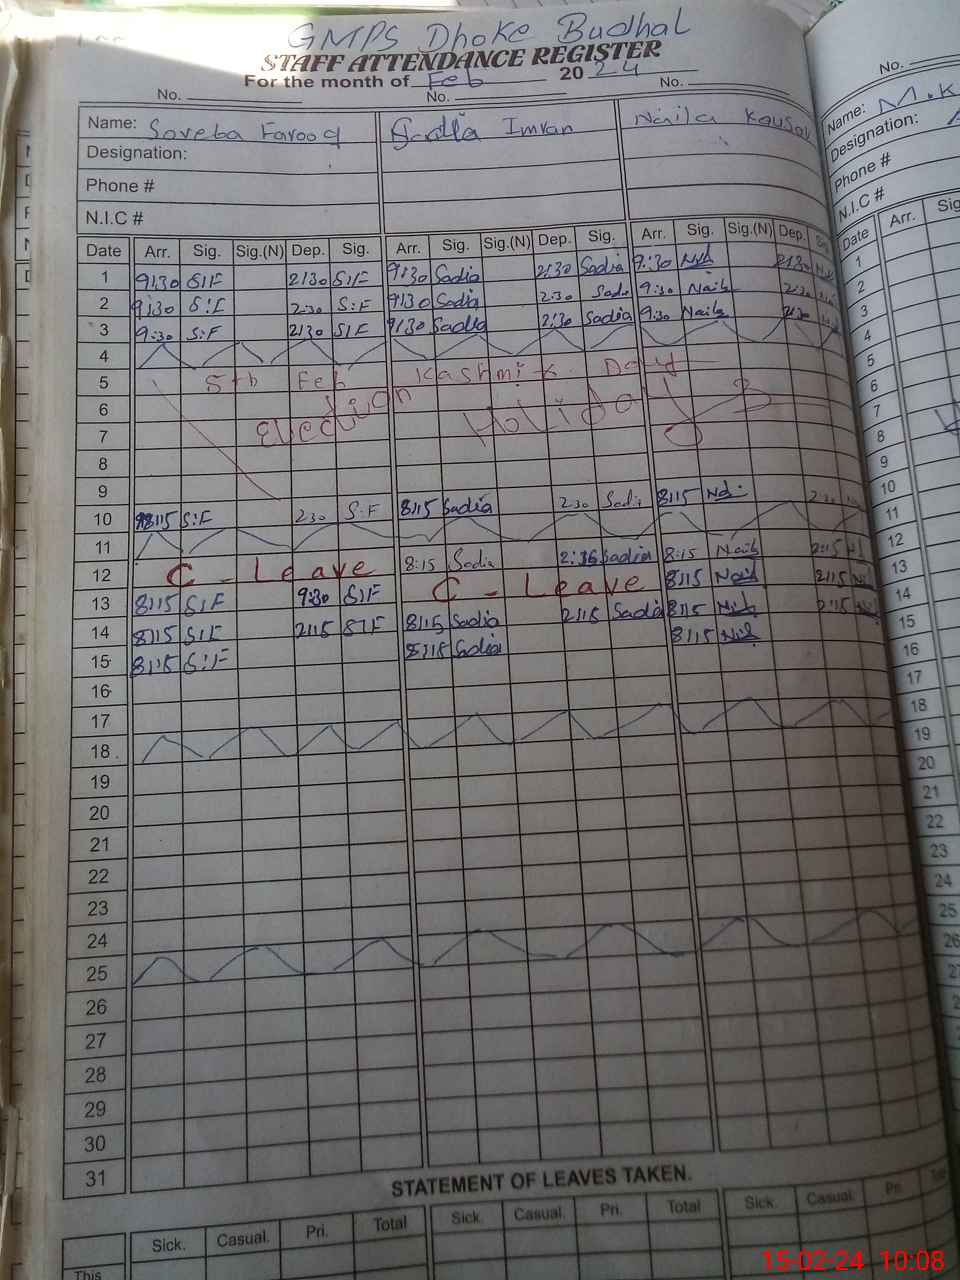 GMPS Dhoke Budhal
STAFF ATTENDANCE REGISTER
For the month of Feb 2024
No. No. No. No.
Name: Soveba Farooq Sadia Imran Naila Kousar Name: M.K
Designation: Designation:
Phone # Phone #
N.I.C # N.I.C #
Date Arr. Sig. Sig.(N) Dep. Sig. Arr. Sig. Sig.(N) Dep. Sig. Arr. Sig. Sig.(N) Dep. Date Arr. Sig
1 9:30 S:F 2:30 S:F 9:30 Sadia 2:30 Sadia 9:30 2:30 1
2 9:30 S:F 2:30 S:F 9:30 Sadia 2:30 Sadia 9:30 Naila 2:30 2
3 9:30 S:F 2:30 S:F 9:30 Sadia 2:30 Sadia 9:30 Naila 2:30 3
4 4
5 5th Feb Kashmir Day 5
6 Election Holidays 6
7 7
8 8
9 9
10 8:15 S:F 2:30 S:F 8:15 Sadia 2:30 Sadia 8:15 2:30 10
11 11
12 C - Leave 8:15 Sadia 2:15 Sadia 8:15 Naila 2:15 12
13 8:15 S:F 9:30 S:F C - Leave 8:15 Naila 2:15 13
14 8:15 S:F 2:15 S:F 8:15 Sadia 2:15 Sadia 8:15 2:15 14
15 8:15 S:F 8:15 Sadia 8:15 15
16 16
17 17
18 18
19 19
20 20
21 21
22 22
23 23
24 24
25 25
26 26
27
28
29
30
31
STATEMENT OF LEAVES TAKEN.
Sick. Casual. Pri. Total Sick. Casual. Pri. Total Sick. Casual. Pri.
This
15-02-24 10:08